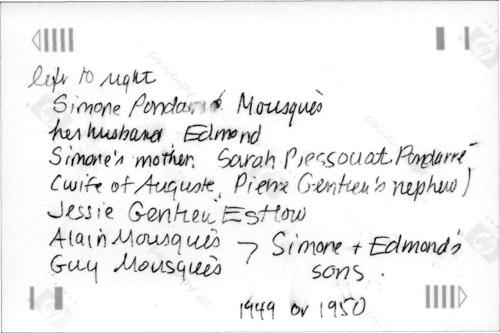 left to right
Simone Pondarré Mousquès
her husband Edmond
Simone's mother. Sarah Pressouat Pondarré
(wife of Auguste, Pierre Gentieu's nephew)
Jessie Gentieu Estlow
Alain Mousquès > Simone + Edmond's
Guy Mousquès sons.
1949 or 1950